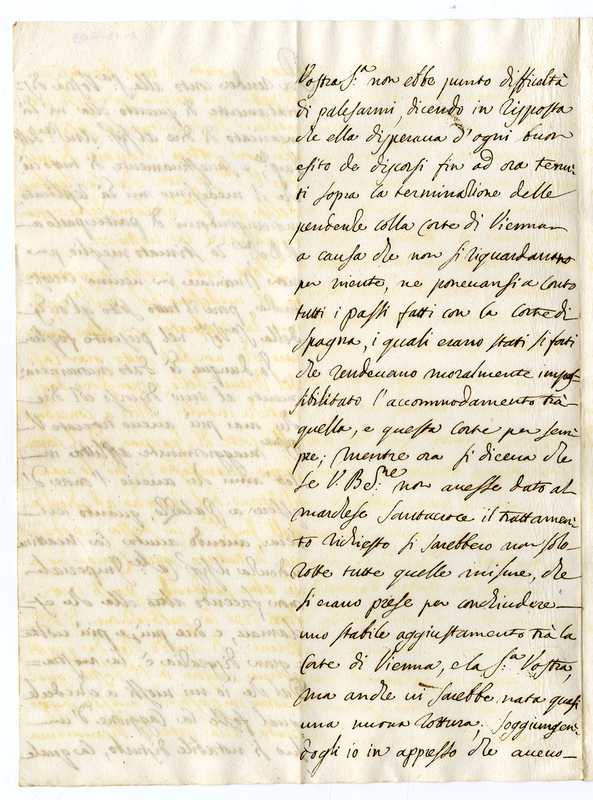 Vostra S.ᵃ non ebbe punto difficultà
di palesarmi, dicendo in risposta
che ella disperaua d'ogni buon
esito de discorsi fin ad ora tenu-
ti sopra la terminazione delle
pendenze colla corte di Vienna
a causa che non si riguardauano
per niente, ne poneuansi a conto
tutti i passi fatti con la corte di
Spagna, i quali erano stati si forti
che rendeuano moralmente impos-
sibilitato l'accommodamento trà
quella, e questa Corte per sem-
pre; mentre ora si diceua che
se V. Bed.ⁿᵉ non auesse dato al
marchese Santacroce il trattamen-
to richiesto si sarebbero non solo
rotte tutte quelle misure, che
si erano prese per conchiudere
uno stabile aggiustamento trà la
Corte di Vienna, e la S.ᵃ Vostra,
ma anche ui sarebbe nata quasi
una nuoua rottura; soggiungen-
dogli io in appresso che aueuo